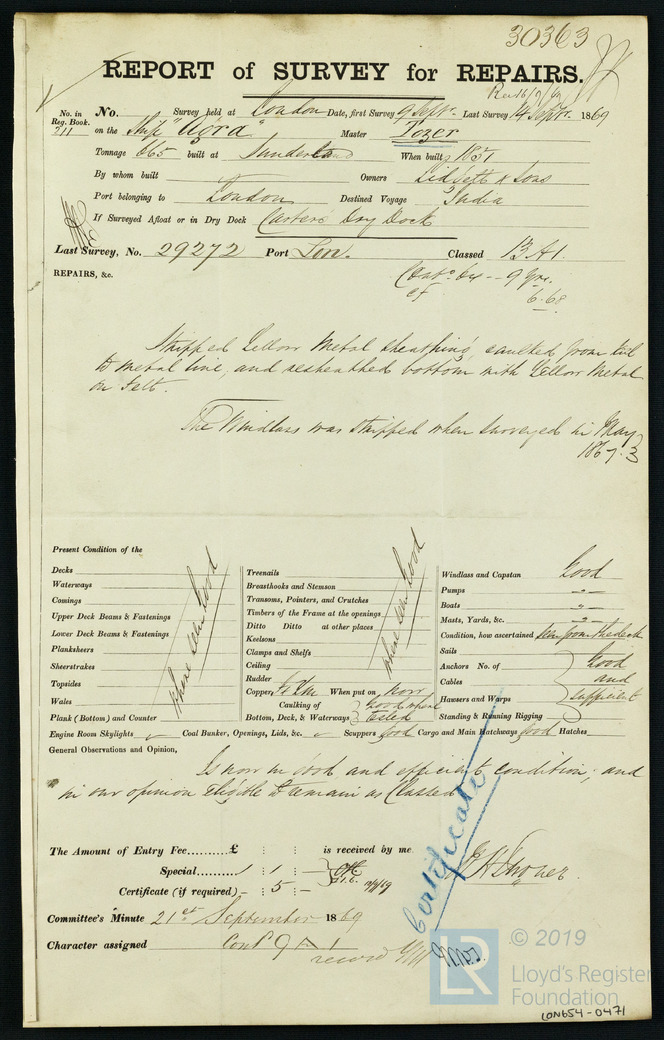 30363
REPORT of SURVEY for REPAIRS.
Rec 16/9/69
No. in Reg. Book. No. Survey held at London Date, first Survey 9 Sept. Last Survey 14 Sept. 1869
211 on the Ship "Agra" Master Pozer
Tonnage 665 built at Sunderland When built 1857
By whom built Owners Lidgett & Sons
Port belonging to London Destined Voyage India
If Surveyed Afloat or in Dry Dock Carters Dry Dock
Last Survey, No. 29272 Port Lon. Classed 13 A1.
REPAIRS, &c. Contd 64 - 9 Yrs.
6.68
Stripped Yellow Metal sheathing, caulked from keel
to metal line, and resheathed bottom with Yellow Metal
on Felt.
The Windlass was stripped when surveyed in May
1867.
Present Condition of the
Decks
Waterways
Comings
Upper Deck Beams & Fastenings
Lower Deck Beams & Fastenings
Planksheers
Sheerstrakes
Topsides
Wales
Plank (Bottom) and Counter
where seen Good
Treenails
Breasthooks and Stemson
Transoms, Pointers, and Crutches
Timbers of the Frame at the openings
Ditto Ditto at other places
Keelsons
Clamps and Shelfs
Ceiling
Rudder
where seen Good
Copper Y.M. When put on, Now
Caulking of Bottom, Deck, & Waterways Good where Tested
Windlass and Capstan Good
Pumps -"-
Boats -"-
Masts, Yards, &c. -"-
Condition, how ascertained Seen from the deck
Sails
Anchors No. of
Cables
Hawsers and Warps
Standing & Running Rigging
Good and sufficient
Engine Room Skylights Coal Bunker, Openings, Lids, &c. Scuppers Good Cargo and Main Hatchways Good Hatches
General Observations and Opinion,
Is now in good and efficient condition; and
in our opinion eligible to remain as Classed
Certificate
The Amount of Entry Fee..........£ : : is received by me
Special.......... 1 :
Certificate (if required) - : 5 :
Committee's Minute 21st September 1869
Character assigned Contd 9 A 1
record
© 2019
LR
Lloyd's Register
Foundation
LON654-0471